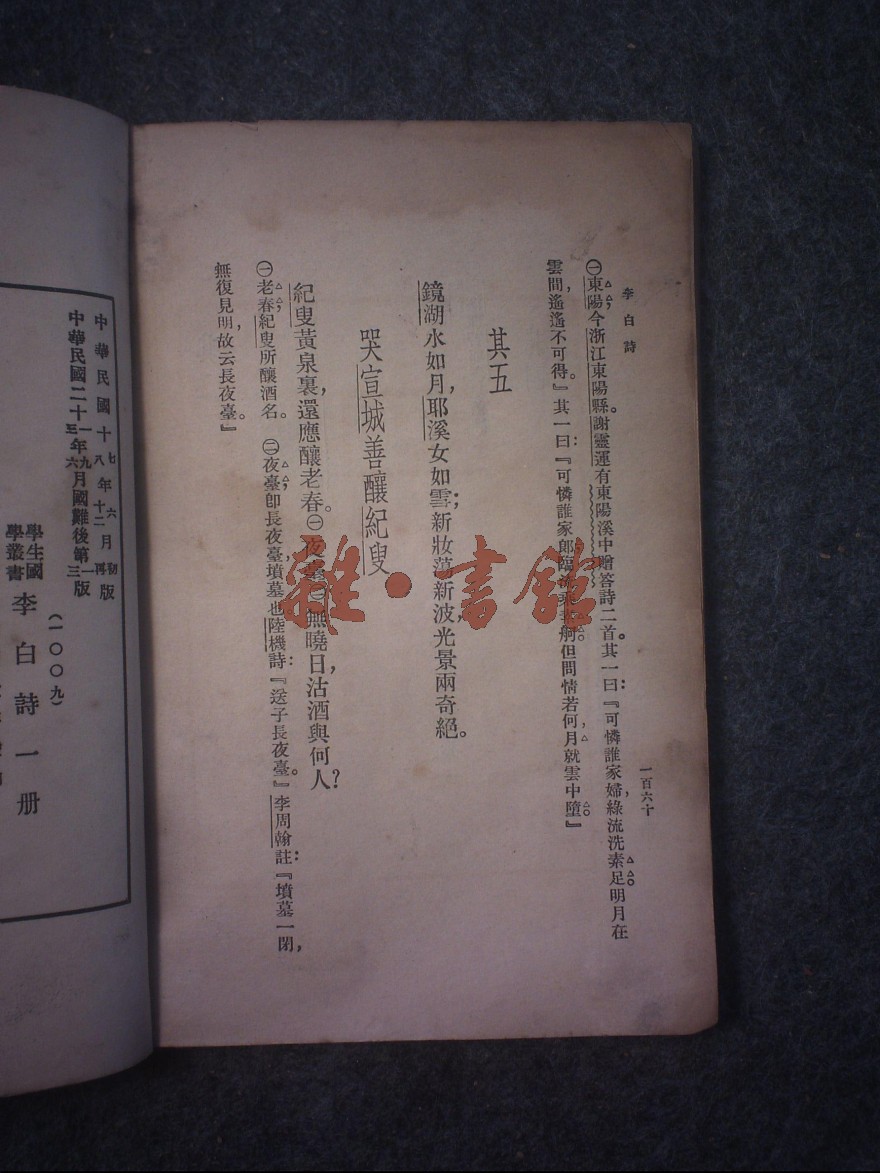 李白詩
一百六十
㊀東陽，今浙江東陽縣。謝靈運有東陽溪中贈答詩二首。其一曰：『可憐誰家婦，綠流洗素足。明月在
雲間，遙遙不可得。』其一曰：『可憐誰家郎，臨流乘素舸。但問情若何，月就雲中墮。』
其五
鏡湖水如月，耶溪女如雪；新妝蕩新波，光景兩奇絕。
哭宣城善釀紀叟
紀叟黃泉裏，還應釀老春。㊀夜臺㊁無曉日，沽酒與何人？
㊀老春，紀叟所釀酒名。　㊁夜臺，即長夜臺，墳墓也。陸機詩：『送子長夜臺。』李周翰註：『墳墓一閉，
無復見明，故云長夜臺。』
雜·書館
中華民國十七年六月初版
中華民國十八年十二月再版
中華民國二十一年九月國難後第一版
中華民國二十三年六月國難後第三版
(一〇〇九)
學生國學叢書 李白詩一册